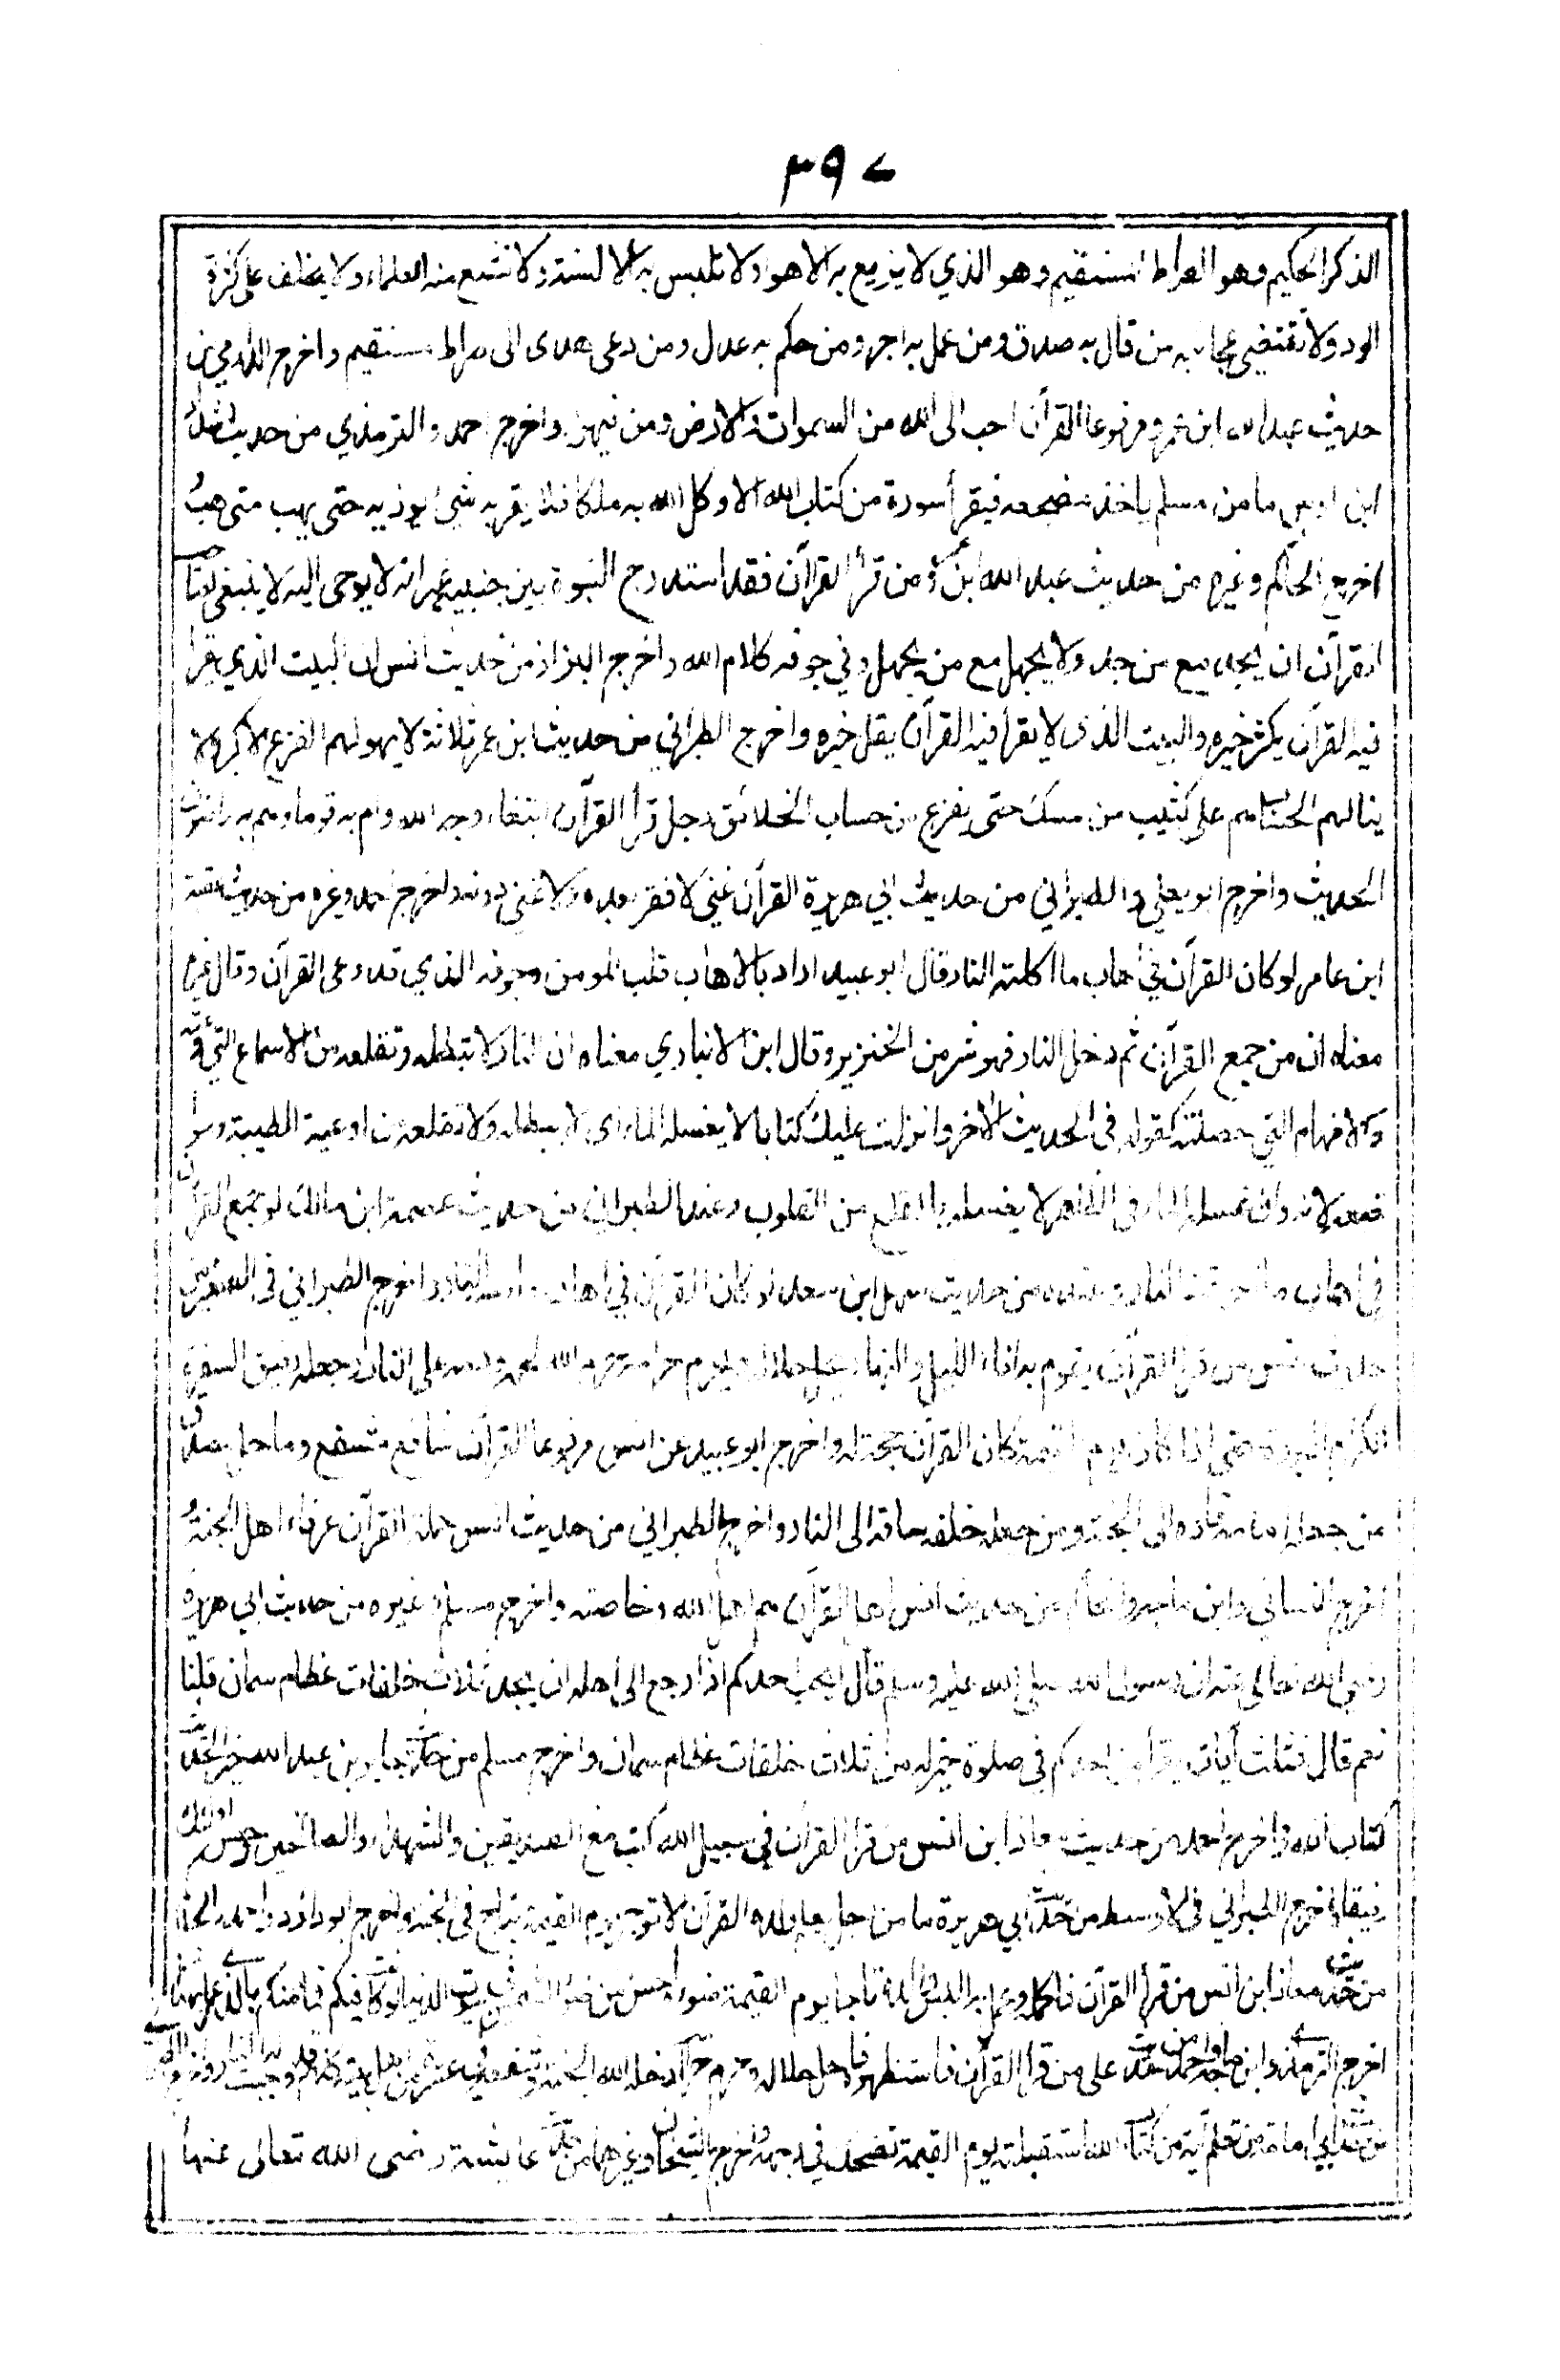 ٣٩٧
الذكر الحكيم وهو الصراط المستقيم وهو الذي لا يزيغ به الاهواء ولا تلتبس به الالسنة ولا تشبع منه العلماء ولا يخلق على كثرة
الرد ولا تنقضي عجائبه من قال به صدق ومن عمل به اجر ومن حكم به عدل ومن دعى هدى الى صراط مستقيم واخرج الدارمي من
حديث عبد الله ابن عمرو مرفوعا القرآن احب الى الله من السموات والارض ومن فيهن واخرج احمد والترمذي من حديث شداد
ابن اوس ما من مسلم ياخذ مضجعه فيقرأ سورة من كتاب الله الا وكل الله به ملكا فلا يقربه شيئ يوذيه حتى يهب متى هب
اخرج الحاكم وغيره من حديث عبد الله ابن من قرأ القرآن فقد استدرج النبوة بين جنبيه غير انه لا يوحى اليه لا ينبغي لصاحب
القرآن ان يجد مع من جد ولا يجهل مع من يجهل وفي جوفه كلام الله واخرج البزاز من حديث انس ان البيت الذي يقرأ
فيه القرآن يكثر خيره والبيت الذى لا يقرأ فيه القرآن يقل خيره واخرج الطبراني من حديث ابن عمر ثلاثة لا يهولهم الفزع الاكبر ولا
ينالهم الحساب هم على كثيب من مسك حتى يفرغ من حساب الخلائق رجل قرأ القرآن ابتغاء وجه الله وام به قوما وهم به راضون
الحديث واخرج ابو يعلى والطبراني من حديث ابي هريرة القرآن غني لا فقر بعده ولا غنى دونه واخرج احمد وغيره من حديث عقبة
ابن عامر لو كان القرآن في اهاب ما اكلته النار قال ابو عبيد اراد بالاهاب قلب المومن وجوفه الذي قد وعى القرآن وقال غيره
معناه ان من جمع القرآن ثم دخل النار فهو شر من الخنزير وقال ابن الانباري معناه ان النار لا تبطله وتقلعه من الاسماع التي وعته
والافهام التي حصلته كقوله في الحديث الآخر وانزلت عليك كتابا لا يغسله الماء اى لا يبطله ولا تقلعه من اوعيه الطيبة و
لانه وان غسله الماء في الظاهر لا يغسله بالقلع من القلوب وعند الطبراني من حديث عصمة ابن مالك لو جمع القرآن
في اهاب ما احرقته النار وعنده من حديث سهل ابن سعد لو كان القرآن في اهاب ما مسته النار واخرج الطبراني في الصغير من
حديث انس من قرأ القرآن يقوم به اناء الليل والنهار يحل حلاله ويحرم حرامه حرم الله لحمه ودمه على النار وجعله رفيق السفرة
الكرام البررة حتى اذا كان يوم القيمة كان القرآن حجة له واخرج ابو عبيد عن انس مرفوعا القرآن شافع مشفع وماحل مصدق
من جعله امامه قاده الى الجنة ومن جعله خلفه ساقه الى النار واخرج الطبراني من حديث انس حملة القرآن عرفاء اهل الجنة
اخرج النسائي وابن ماجه والحاكم من حديث انس اهل القرآن هم اهل الله وخاصته واخرج مسلم وغيره من حديث ابي هريرة
رضي الله تعالى عنه ان رسول الله صلى الله عليه وسلم قال ايحب احدكم اذا رجع الى اهله ان يجد ثلاث خلفات عظام سمان قلنا
نعم قال فثلث آيات يقرأ بهن احدكم في صلوة خير له من ثلاث خلفات عظام سمان واخرج مسلم من حديث جابر بن عبد الله خير الحديث
كتاب الله واخرج احمد من حديث معاذ ابن انس من قرأ القرآن في سبيل الله كتب مع الصديقين والشهداء والصالحين وحسن اولئك
رفيقا واخرج الطبراني في الاوسط من حديث ابي هريرة ما من رجل يعلم ولده القرآن الا توج يوم القيمة بتاج في الجنة واخرج ابو داؤد واحمد والحاكم
من حديث معاذ ابن انس من قرأ القرآن فاكمله وعمل به البس والده تاجا يوم القيمة ضوءه احسن من ضوء الشمس في بيوت الدنيا لو كانت فيكم فما ظنكم بالذي عمل بهذا
اخرج الترمذي وابن ماجه واحمد من حديث على من قرأ القرآن فاستظهره فاحل حلاله وحرم حرامه ادخله الله الجنة وشفعه في عشرة من اهل بيته كلهم قد وجبت له النار واخرج الطبراني
من حديث ابي امامة من تعلم آية من كتاب الله استقبلته يوم القيمة تضحك في وجهه واخرج الشيخان وغيرهما من حديث عايشة رضى الله تعالى عنها